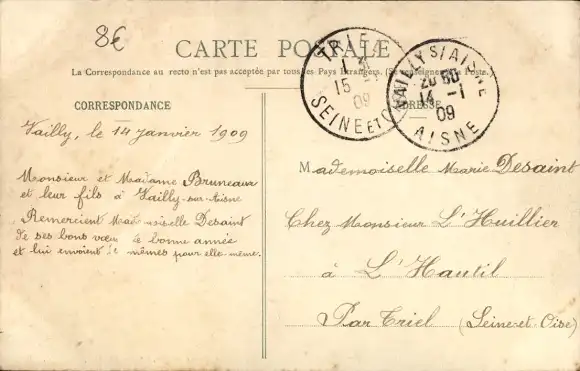 8€
CARTE POSTALE
La Correspondance au recto n'est pas acceptée par tous les Pays Etrangers. (Se renseigner à la Poste.
CORRESPONDANCE
ADRESSE
TRIEL
15 -1
09
SEINE ET OISE
VAILLY S/AISNE
20 30
14 -1
09
AISNE
Vailly, le 14 janvier 1909
Monsieur et Madame Bruneaux
et leur fils à Vailly-sur-Aisne
Remercient Mademoiselle Desaint
de ses bons vœux de bonne année
et lui envoient les mêmes pour elle-même.
Mademoiselle Marie Desaint
Chez Monsieur L'Huillier
à L'Hautil
Par Triel (Seine-et-Oise)